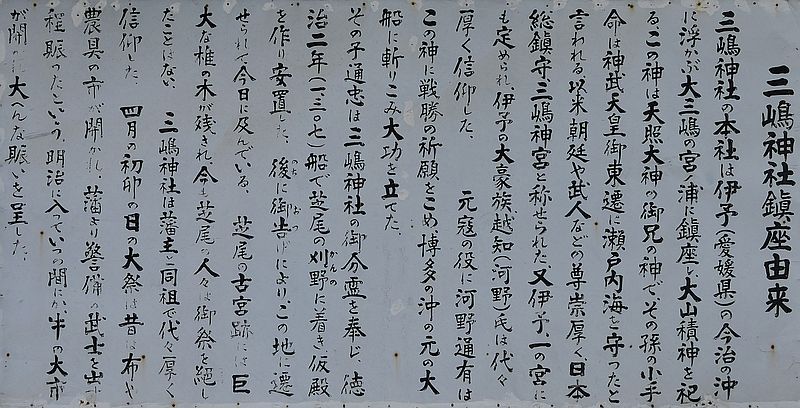 三嶋神社鎮座由来
三嶋神社の本社は伊予(愛媛県)の今治の沖
に浮かぶ大三嶋の宮ヶ浦に鎮座し大山積神を祀
るこの神は天照大神の御兄の神で、その孫の小手
命は神武天皇御東遷に瀬戸内海を守つたと
言われる以来朝廷や武人などの尊崇厚く日本
総鎮守三嶋神宮と称せられた又伊予、一の宮に
も定められ、伊予の大豪族越知(河野)氏は代々
厚く信仰した。 元寇の役に河野通有は
この神に戦勝の祈願をこめ、博多の沖の元の大
船に斬りこみ大功を立てた。
その子通忠は三嶋神社の御分霊を奉じ 徳
治二年(一三〇七)船で芝尾の刈野に着き仮殿
かんの
を作り安置した。 後に御告げにより、この地に遷
のち おつ
せられて今日に及んでいる。 芝尾の古宮跡には巨
大な椎の木が残され今も芝尾の人々は御祭を絶し
たことはない。 三嶋神社は藩主と同祖で代々厚く
信仰した。 四月の初卯の日の大祭は昔は布や
農具の市が開かれ、藩より警備の武士を出す
程賑ったという。明治に入っていつの間にか、牛の大市
が開かれ大へんな賑いを呈した。